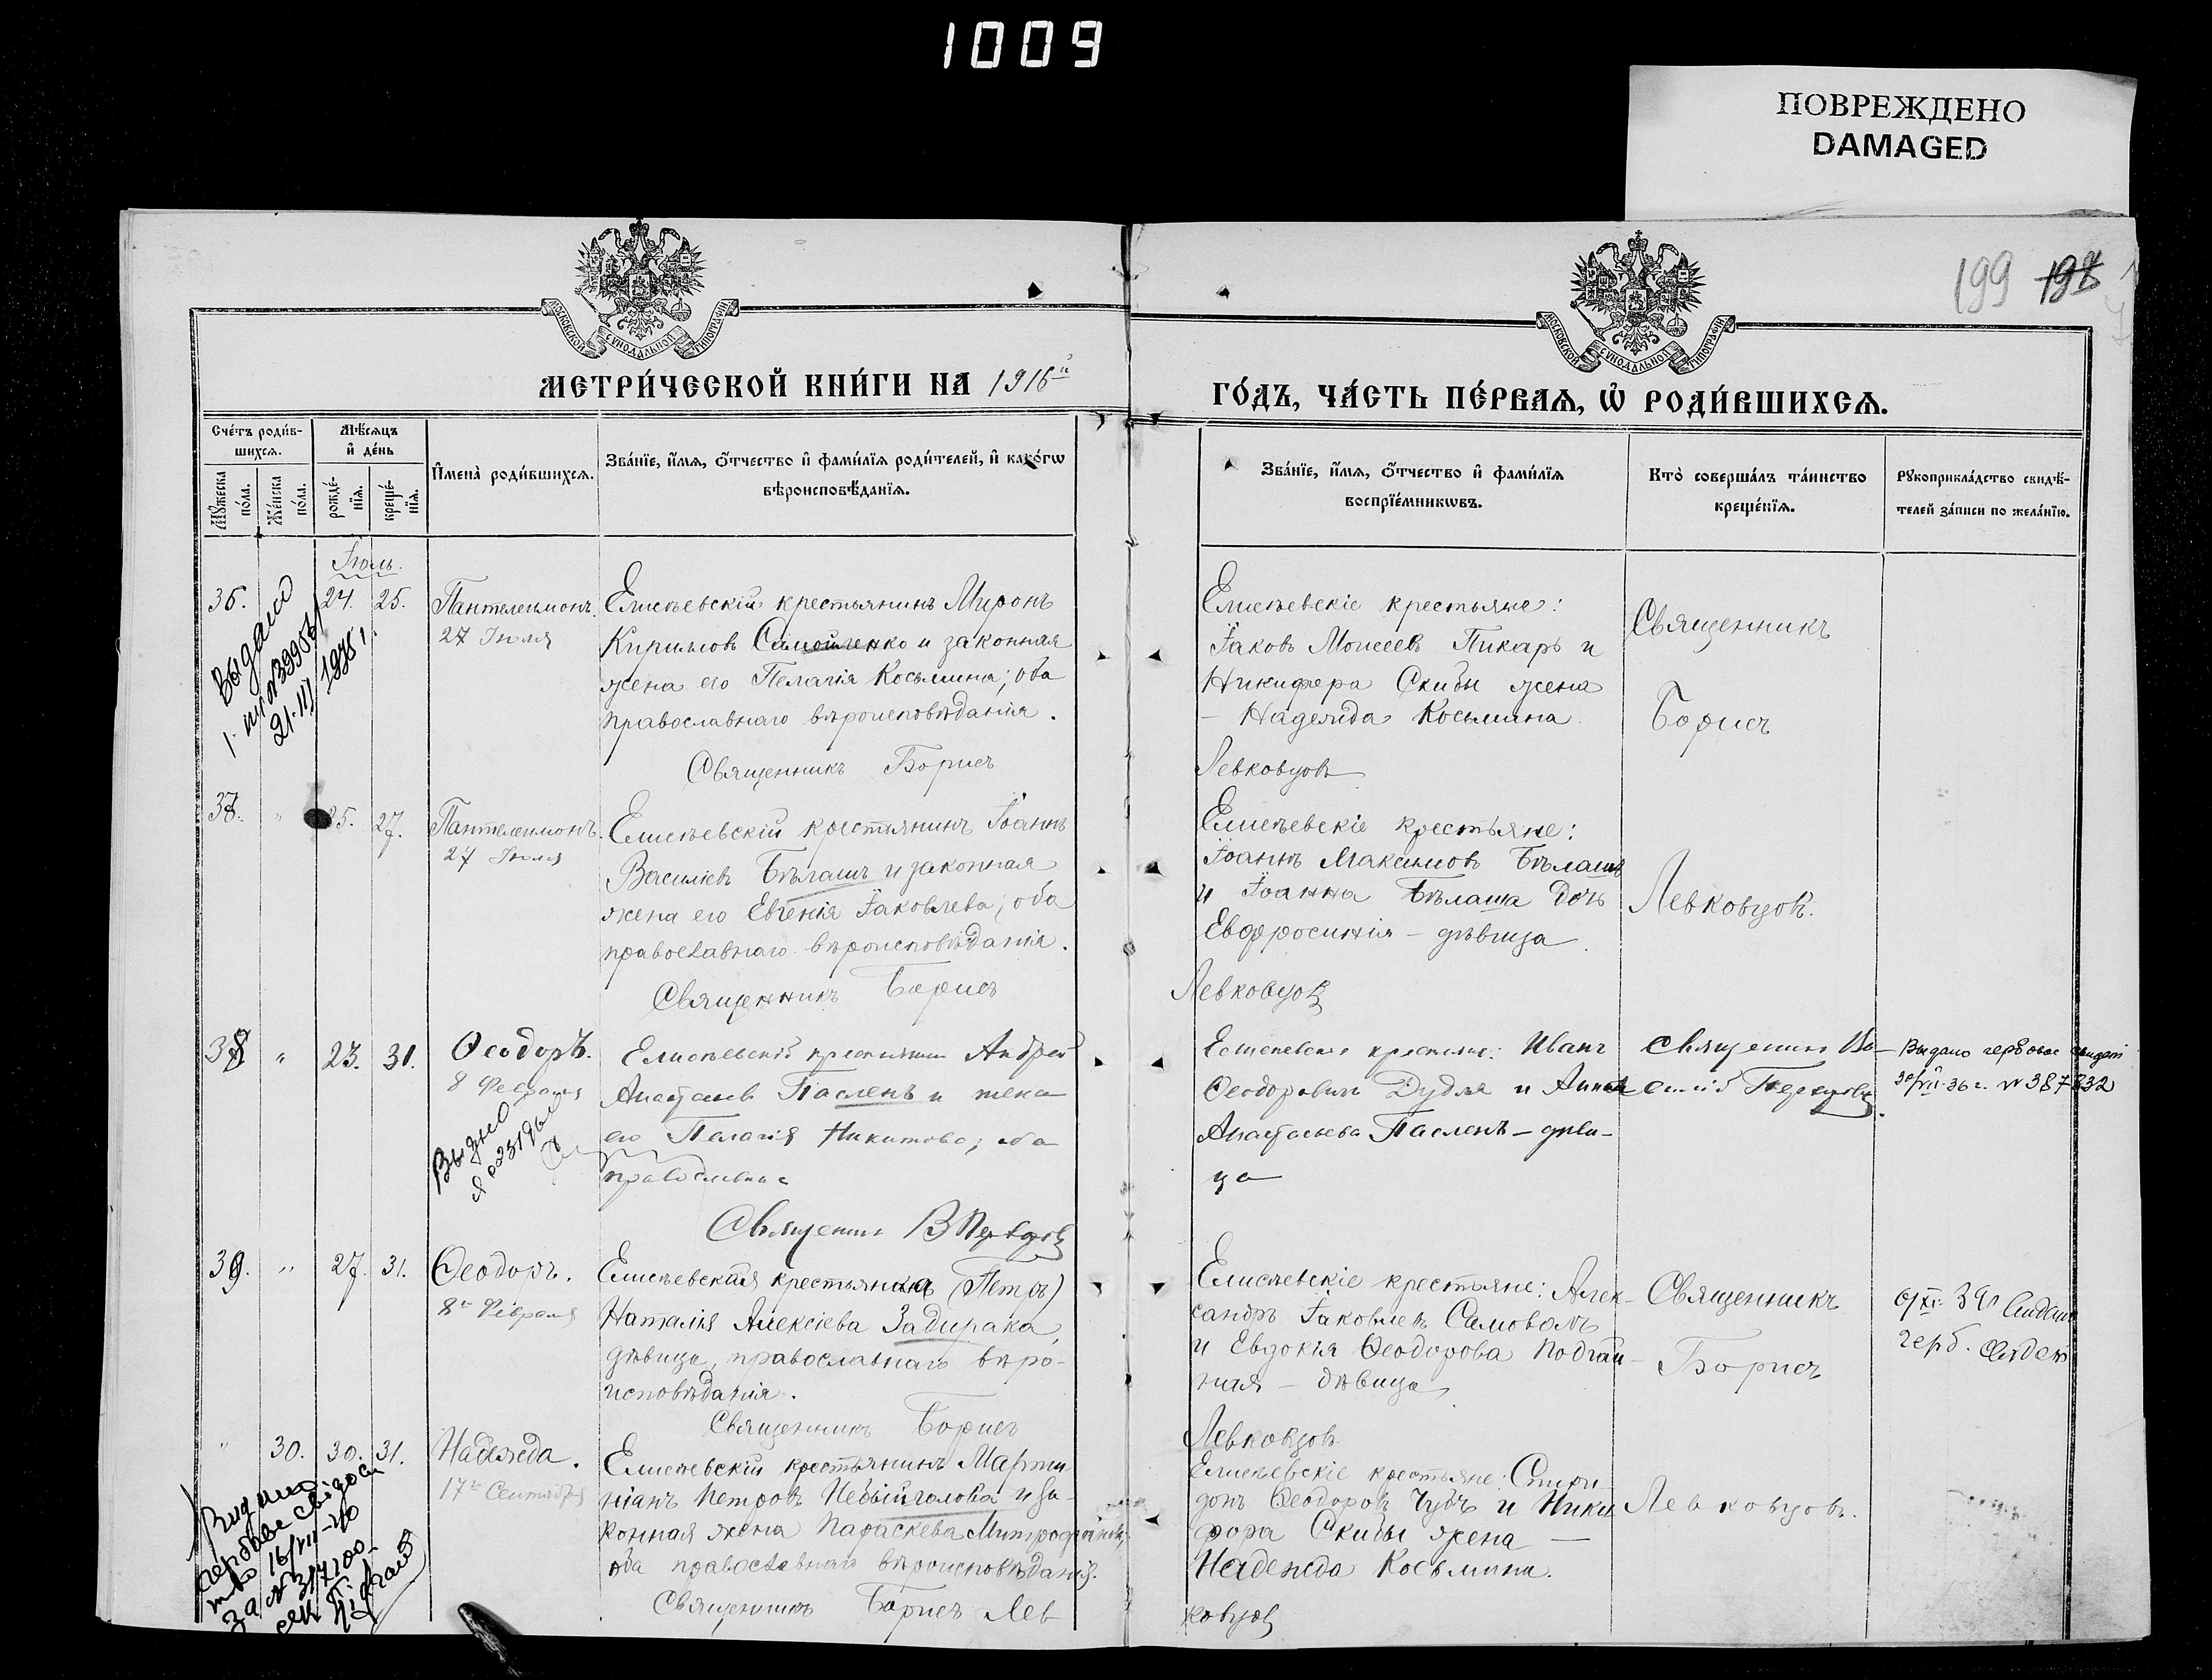 1009
ПОВРЕЖДЕНО
DAMAGED
199 197
МОСКОВСКОЙ СУНОДАЛЬНОЙ ТИПОГРАФІИ
МОСКОВСКОЙ СУНОДАЛЬНОЙ ТИПОГРАФІИ
МЕТРИ́ЧЕСКОЙ КНИ́ГИ НА 1916й
ГО́ДЪ, ЧА́СТЬ ПЕ́РВАЯ, Ѡ҆ РОДИ́ВШИХСЯ.
Сче́тъ роди́в-
шихся.
Мѣ́сяцъ
и҆ де́нь
Мꙋ́жеска по́ла.
Же́нска по́ла.
рожде́-
нїя.
креще́-
нїя.
И҆мена̀ роди́вшихся.
Зва́нїе, и҆́мя, ѻ҆́тчество и҆ фами́лїя роди́телей, и҆ како́гѡ
вѣроисповѣ́данїя.
Зва́нїе, и҆́мя, ѻ҆́тчество и҆ фами́лїя
воспрїе́мникѡвъ.
Кто̀ соверша́лъ та́инство
креще́нїя.
Рꙋкоприкла́дство свидѣ́-
телей за́писи по жела́нїю.
Іюль.
36. 24. 25.
Пантелеимонъ.
27 Іюля
Выдано
21.III 1935
Елисѣевскій крестьянинъ Миронъ
Кириловъ Самойленко и законная
жена его Пелагія Косьмина; оба
православнаго вѣроисповѣданія.
Священникъ Борисъ
Елисѣевскіе крестьяне:
Іаковъ Моисеевъ Пикарь и
Никифора Скибы жена
— Надежда Косьмина.
Левковцовъ
Священникъ
Борисъ
37. " 25. 27.
Пантелеимонъ.
27 Іюля
Елисѣевскій крестьянинъ Іоаннъ
Василіевъ Бѣлашъ и законная
жена его Евгенія Іаковлева; оба
православнаго вѣроисповѣданія.
Священникъ Борисъ
Елисѣевскіе крестьяне:
Іоаннъ Максимовъ Бѣлашъ
и Іоанна Бѣлаша дочь
Евфросинія — дѣвица.
Левковцовъ
Левковцовъ.
38 " 23. 31.
Ѳеодоръ.
8 Февраля
Выдано
Елисѣевскій крестьянин Андрей
Анастасіев Пасленъ и жена
его Пелагія Никитова; оба
православные
Священникъ В Перевозов
Елисѣевскіе крестьяне: Иванъ
Ѳеодоровичъ Дудля и Анна
Анастасьева Пасленъ — дѣви-
ца
Священник Ва-
силій
Выдано гербовое свидет
30/VII-36 г. № 387832
39. " 27. 31.
Ѳеодоръ.
8го Февраля
Елисѣевская крестьянка (Петръ)
Наталія Алексіева Задирака,
дѣвица, православнаго вѣро-
исповѣданія.
Священникъ Борисъ
Елисѣевскіе крестьяне: Алек-
сандръ Іаковлевъ Самоволъ
и Евдокія Ѳеодорова Подгай-
ная — дѣвица
Левковцовъ
Священникъ
Борисъ
герб.
" 30. 30. 31.
Надежда.
17го Сентября
Видано
16/VII-40
за № 317100
Елисѣевскій крестьянинъ Марти-
ніанъ Петровъ Небийголова и за-
конная жена Параскева Митрофанова;
оба православнаго вѣроисповѣданія.
Священникъ Борисъ Лев
Елисѣевскіе крестьяне: Спири-
донъ Ѳеодоровъ Чубъ и Ники
фора Скибы жена —
Надежда Косьмина.
ковцовъ
Левковцовъ.